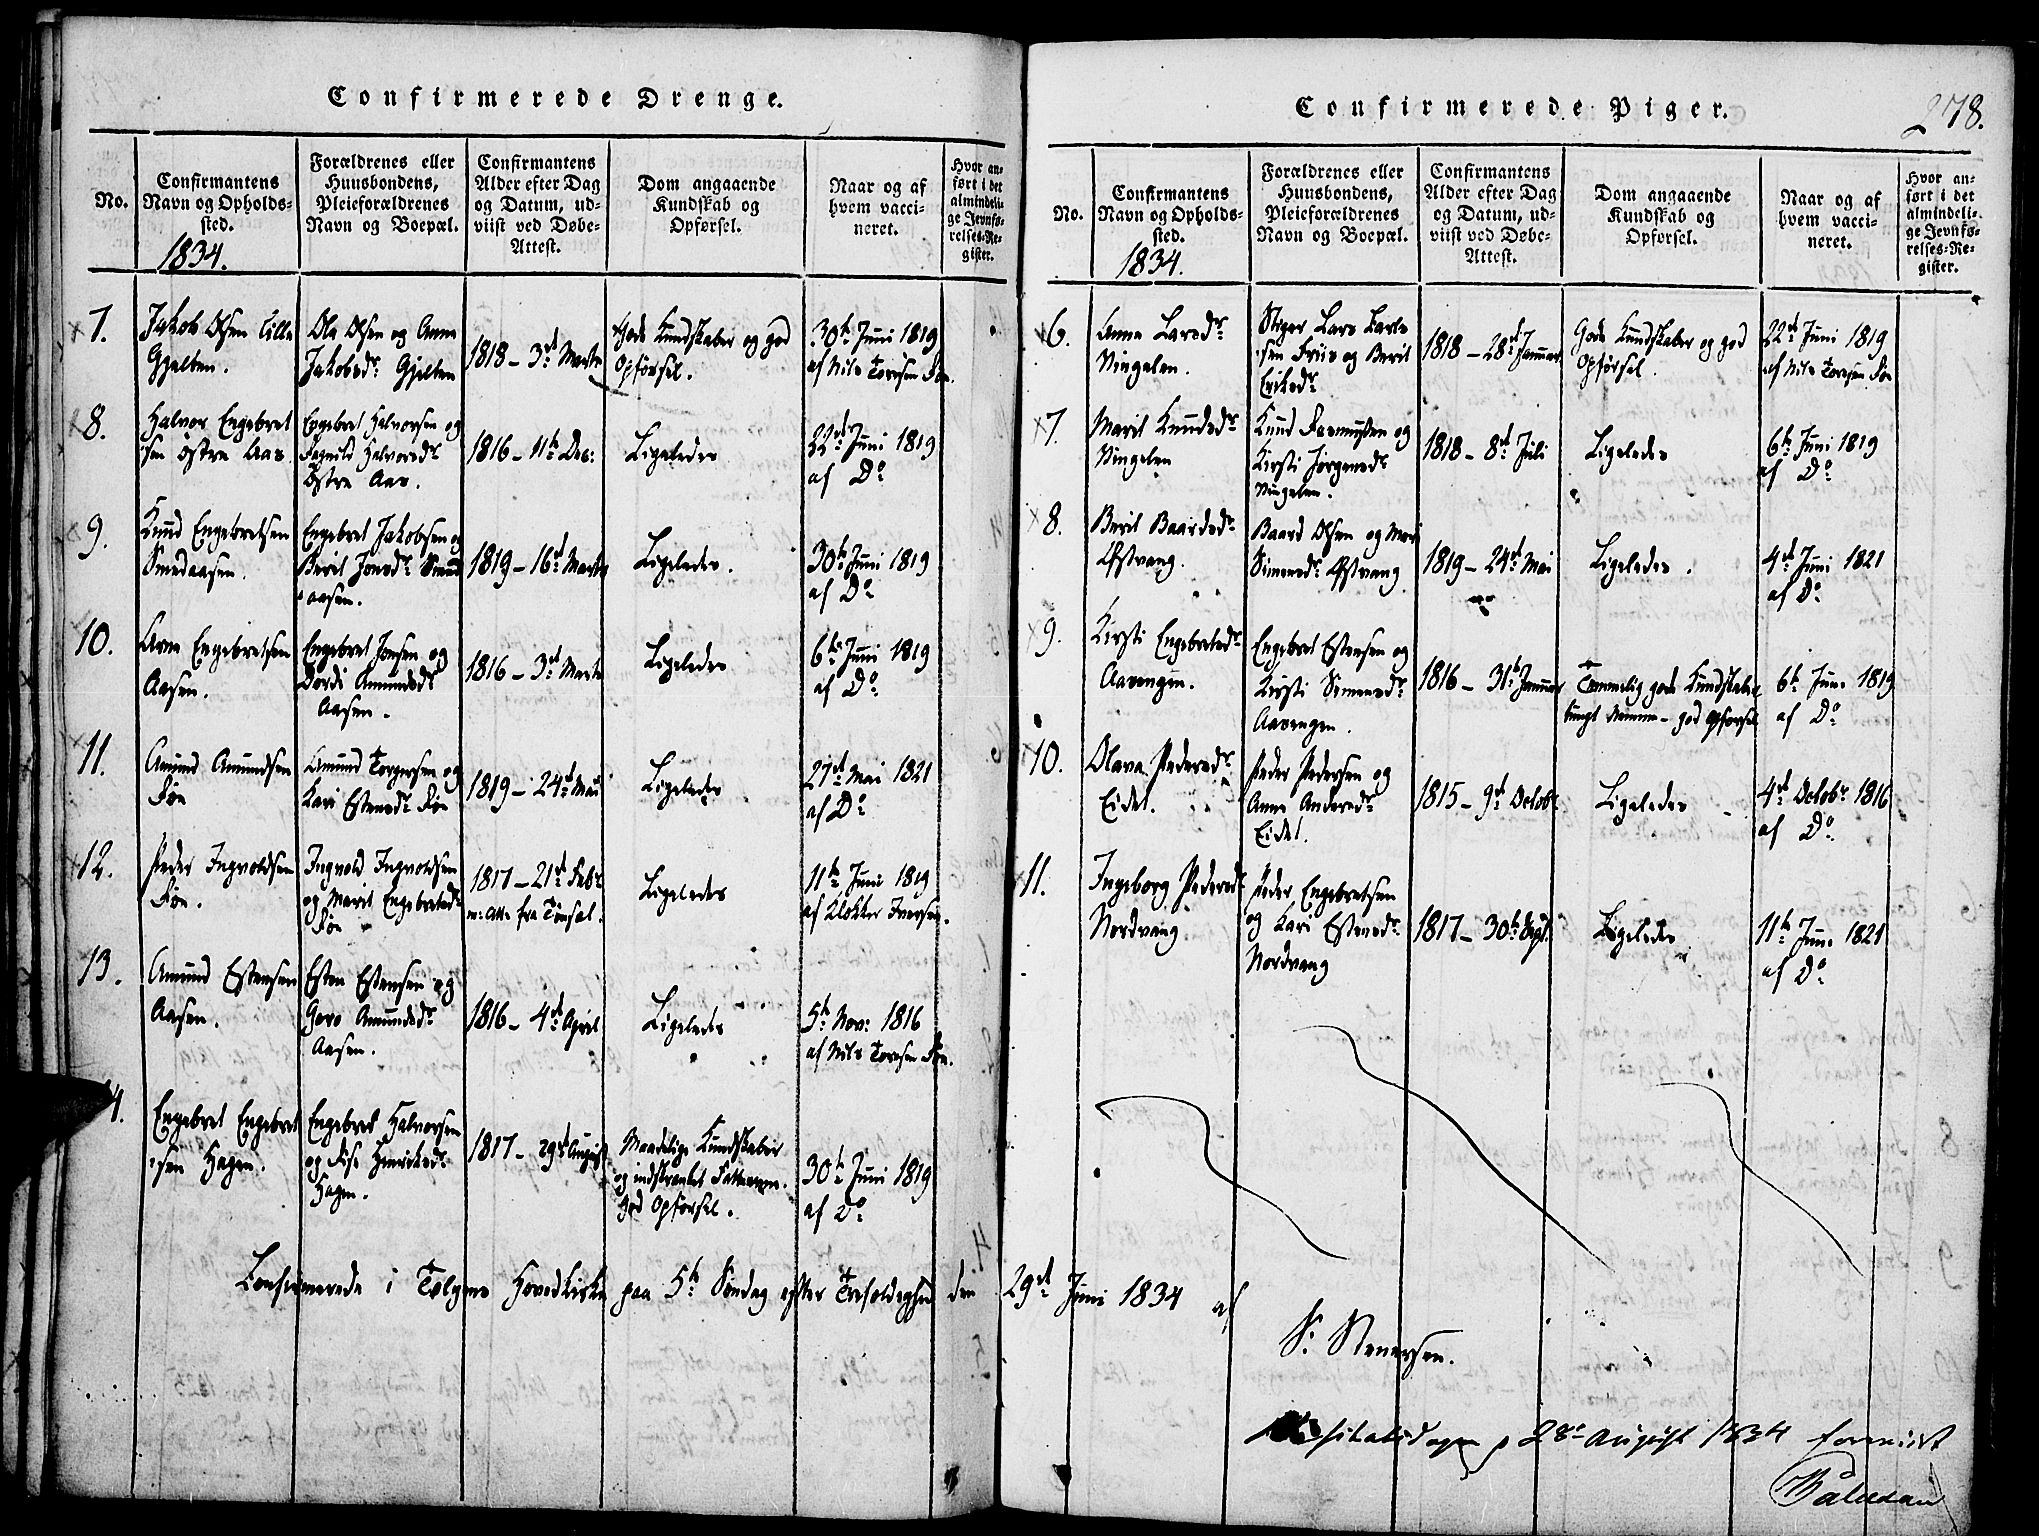 Confirmerede Drenge.
No.
Confirmantens
Navn og Opholds-
sted.
1834.
Forældrenes eller
Huusbondens,
Pleieforældrenes
Navn og Boepæl.
Confirmantens
Alder efter Dag
og Datum, ud-
viist ved Døbe-
Attest.
Dom angaaende
Kundskab og
Opførsel.
Naar og af
hvem vacci-
neret.
Hvor an-
ført i det
almindeli-
ge Jevnfø-
relses-Re-
gister.
7.
Jakob Olsen Lille
Gjelten.
Ola Olsen og Anne
Jakobsdr. Gjelten
1818 - 3d Marts
Gode Kundskaber og god
Opførsel.
30te Juni 1819
af Nils Toresen Føn.
8.
Halvor Engebret
sen østre Aas
Engebret Halvorsen og
Halvorsdr.
Østre Aas.
1816 - 11te Dec:
Ligeledes
22d Juni 1819
af Do
9.
Knud Engebretsen
Smedaasen.
Engebret Jakobsen og
Berit Jonsdr. Smed
aasen.
1819 - 16d Marts
Ligeledes.
30te Juni 1819
af Do
10.
Arne Engebretsen
Aasen.
Engebret Jonsen og
Dordi Amundsdr
Aasen.
1816 - 3d Marts
Ligeledes
6te Juni 1819
af Do
11.
Amund Amundsen
Føn
Amund Torgersen og
Kari Estensdr. Føn
1819 - 24d Mai
Ligeledes
27d Mai 1821
af Do
12.
Peder Ingvoldsen
Føn.
Ingvold Ingvoldsen
og Marit Engebretsdr
Føn
1817 - 21d Febr
fra Tønset.
Ligeledes
11te Juni 1819
af Klokker Iversen.
13.
Amund Estensen
Aasen.
Esten Estensen og
Goro Amundsdr.
Aasen.
1816 - 4d April
Ligeledes
5te Nov: 1816
af Nils Toresen Føn.
4.
Engebret Engebret
sen Hagen.
Engebret Halvorsen
og Henriksdr.
Hagen.
1817 - 29d August
Maadelige Kundskaber
og indskrænket
God Opførsel.
30te Juni 1819
af Do
Confirmerede i Tolgens Hovedkirke paa 5te Søndag efter Trefoldighed den 29d Juni 1834 af
S. Stenersen.
Confirmerede Piger.
278.
No.
Confirmantens
Navn og Opholds-
sted.
1834.
Forældrenes eller
Huusbondens,
Pleieforældrenes
Navn og Boepæl.
Confirmantens
Alder efter Dag
og Datum, ud-
viist ved Døbe-
Attest.
Dom angaaende
Kundskab og
Opførsel.
Naar og af
hvem vacci-
neret.
Hvor an-
ført i det
almindeli-
ge Jevnfø-
relses-Re-
gister.
6.
Anne Larsdr.
Vingelen.
Stiger Lars Larls
sen Friis og Berit
Eriksdr.
1818 - 28d Januar
Gode Kundskaber og god
Opførsel.
22d Juni 1819
af Nils Toresen Føn
7.
Marit Knudsdr.
Vingelen
Knud Rasmussen og
Kirsti Jørgensdr
Vingelen.
1818 - 8d Juli
Ligeledes
6te Juni 1819
af Do
8.
Berit Baardsdr.
Østvang.
Baard Olsen og Mari
Simensdr. Østvang
1819 - 24d Mai
Ligeledes.
4d Juni 1821
af Do
9.
Kirsti Engebretsdr.
Aasengen.
Engebret Estensen og
Kirsti Simensdr.
Aasengen.
1816 - 31te Januar
Temmelig gode Kundskaber
tungt Nemme - god Opførsel
6te Juni 1819
af Do
10.
Olava Pedersdr.
Eidet.
Peder Pedersen og
Anne Andersdr.
Eidet.
1815 - 9d Octobr.
Ligeledes
4d Octobr 1816
af Do
11.
Ingeborg Pedersdr
Nordvang
Peder Engebretsen
og Kari Estensdr.
Nordvang
1817 - 30te Sept.
Ligeledes
11te Juni 1821
af Do
28de August 1834 foreviist